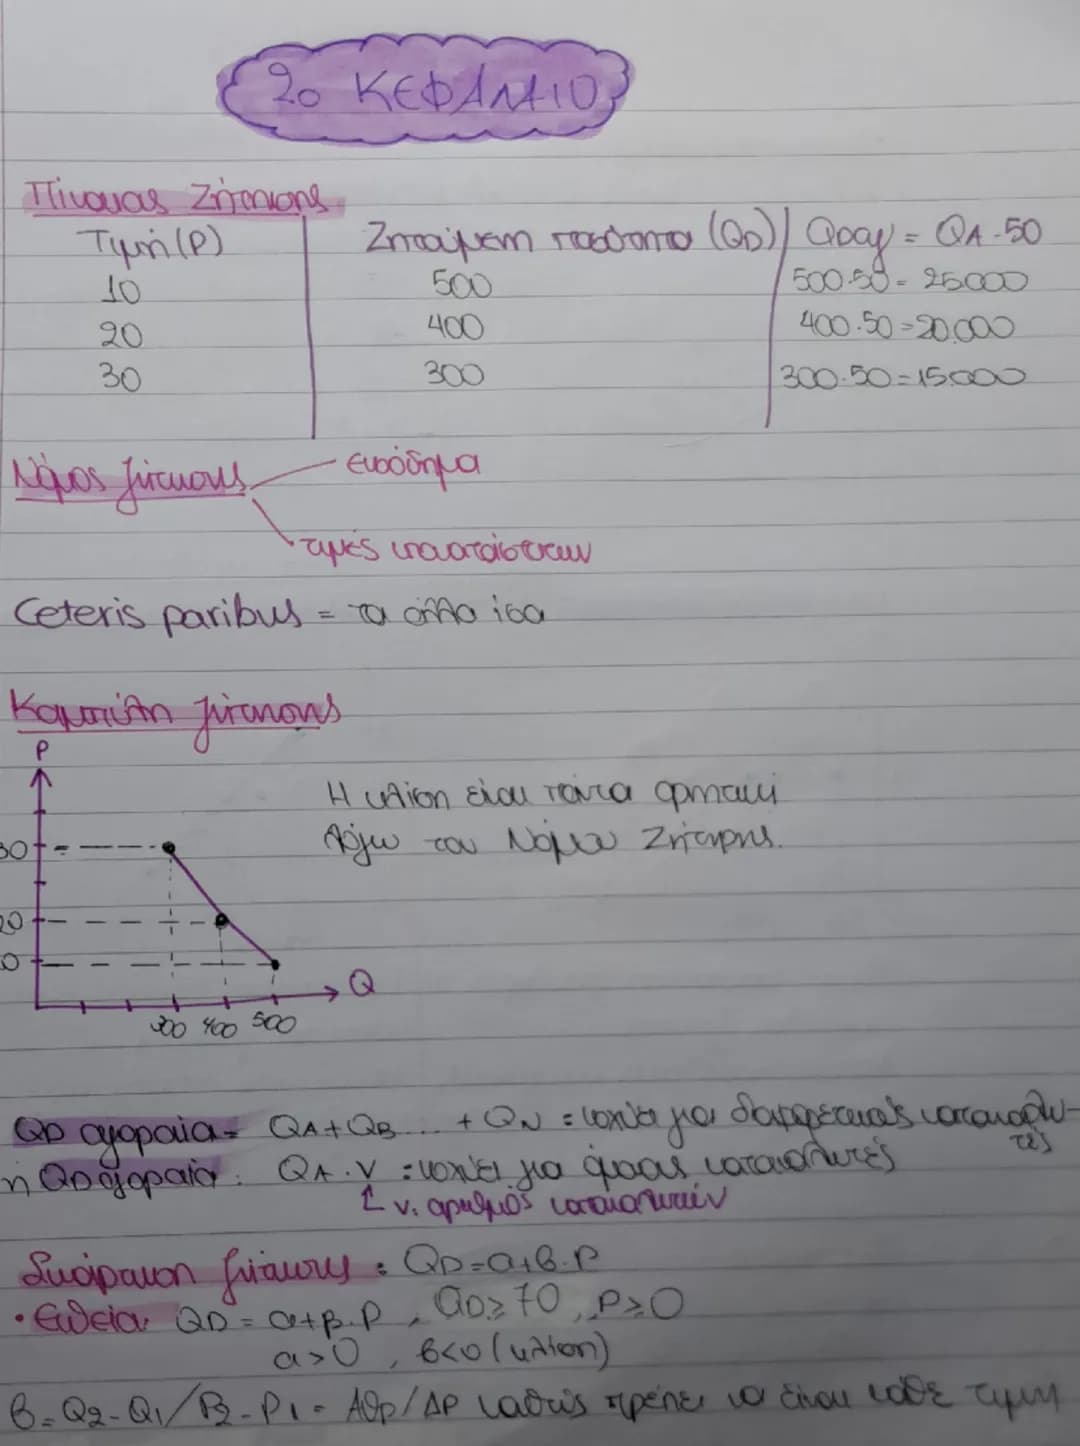 2ο ΚΕΦΑΛΑΙΟ
Πίνακας Ζήτησης
Τιμή (P) Ζητούμενη ποσότητα (QD) QDαγ = QA·50
10 500 500·50 = 25.000
20 400 400·50 = 20.000
30 300 300·50 = 15000
Νόμος ζήτησης εισόδημα
τιμές υποκατάστατων
Ceteris paribus = τα άλλα ίσα
Καμπύλη ζήτησης
P
Η κλίση είναι πάντα αρνητική
30 λόγω του Νόμου Ζήτησης.
20
Q
300 400 500
QD αγοραία = QA+QB... + QN = ισχύει για διαφορετικούς καταναλω-
τές
ή QDαγοραία: QA·ν = ισχύει για όμοιους καταναλωτές
ν: αριθμός καταναλωτών
Συνάρτηση ζήτησης: QD=α+β·P
• Ευθεία QD = α+β·P, QD≥70, P≥0
α>0, β<0 (κλίση)
β=Q2-Q1/P2-P1 = ΔQD/ΔP καθώς πρέπει να είναι κάθε τιμή